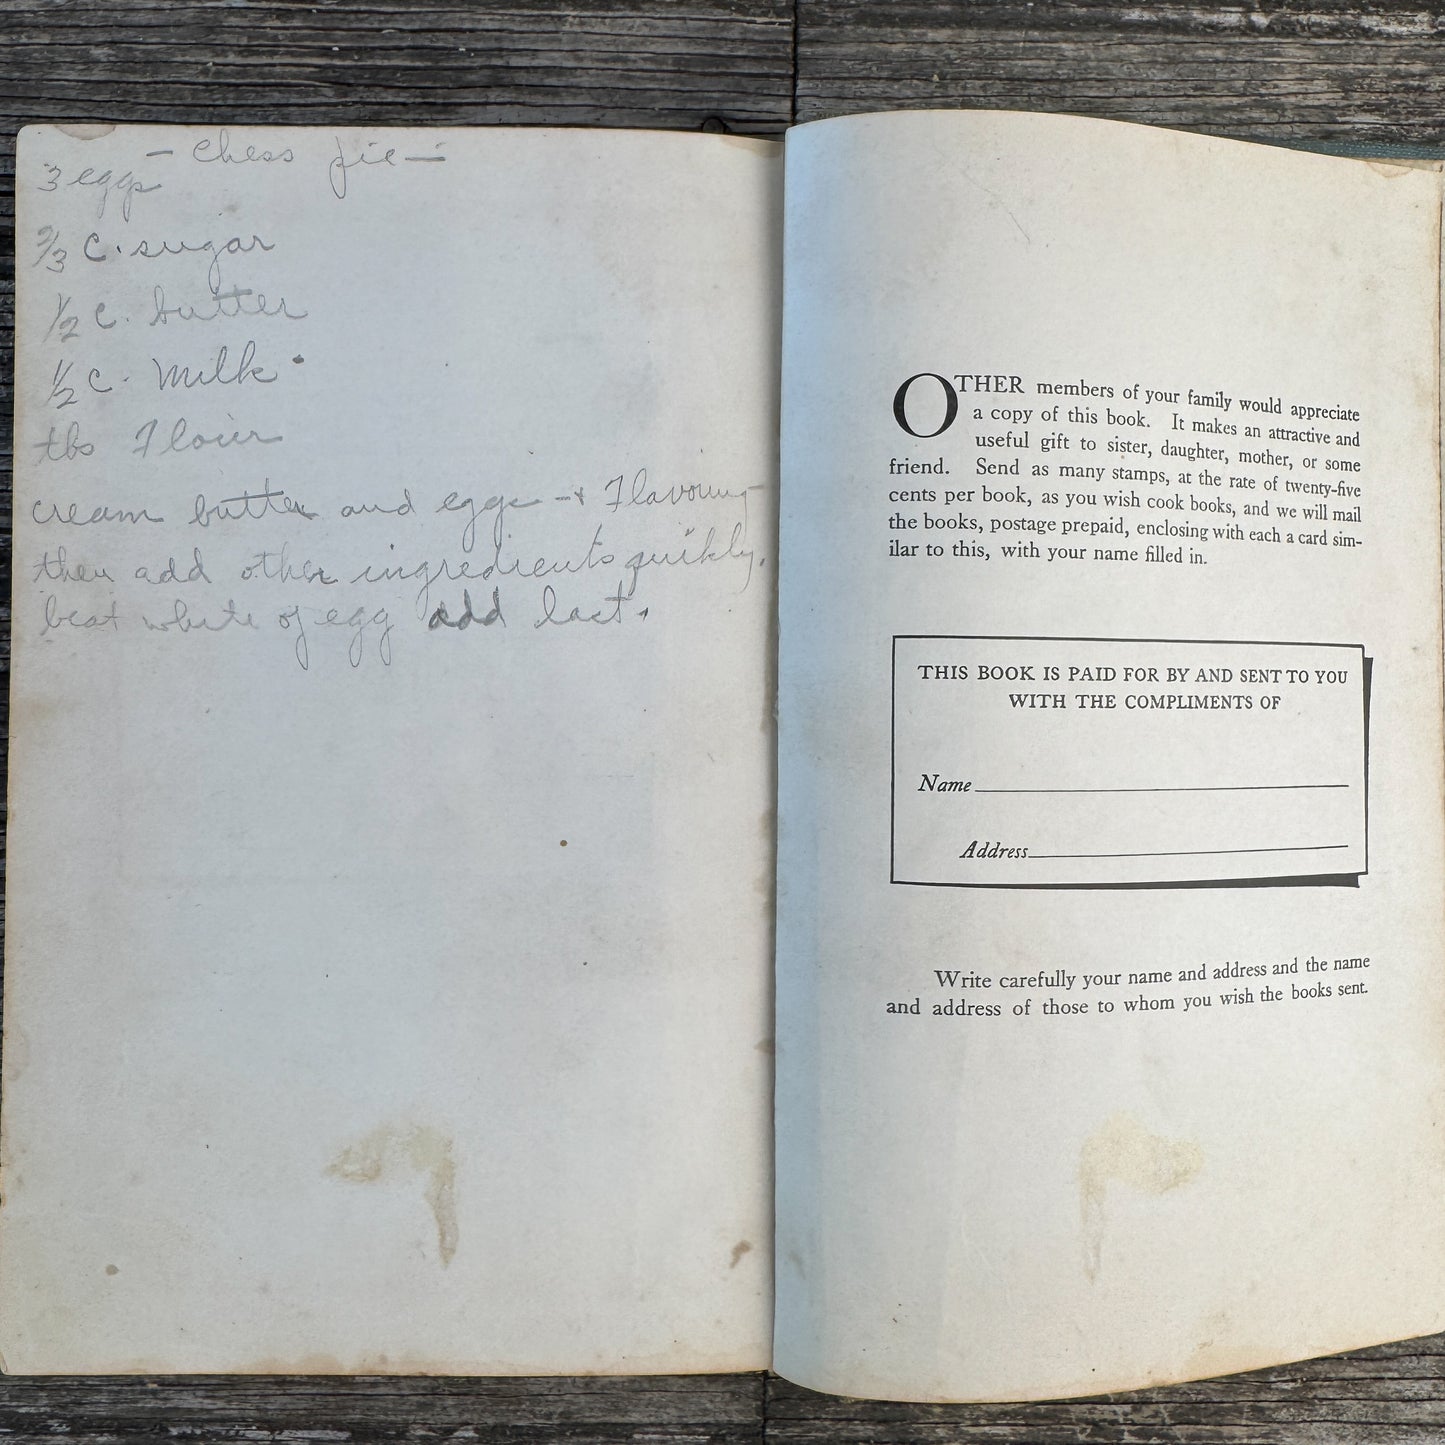 — Chess pie —
3 eggs
2/3 C. sugar
1/2 C. butter
1/2 C. Milk.
tbs Flour
cream butter and eggs — + Flavouring —
then add other ingredients quikly.
beat white of egg add last.
OTHER members of your family would appreciate
a copy of this book. It makes an attractive and
useful gift to sister, daughter, mother, or some
friend. Send as many stamps, at the rate of twenty-five
cents per book, as you wish cook books, and we will mail
the books, postage prepaid, enclosing with each a card sim-
ilar to this, with your name filled in.
THIS BOOK IS PAID FOR BY AND SENT TO YOU
WITH THE COMPLIMENTS OF
Name
Address
Write carefully your name and address and the name
and address of those to whom you wish the books sent.